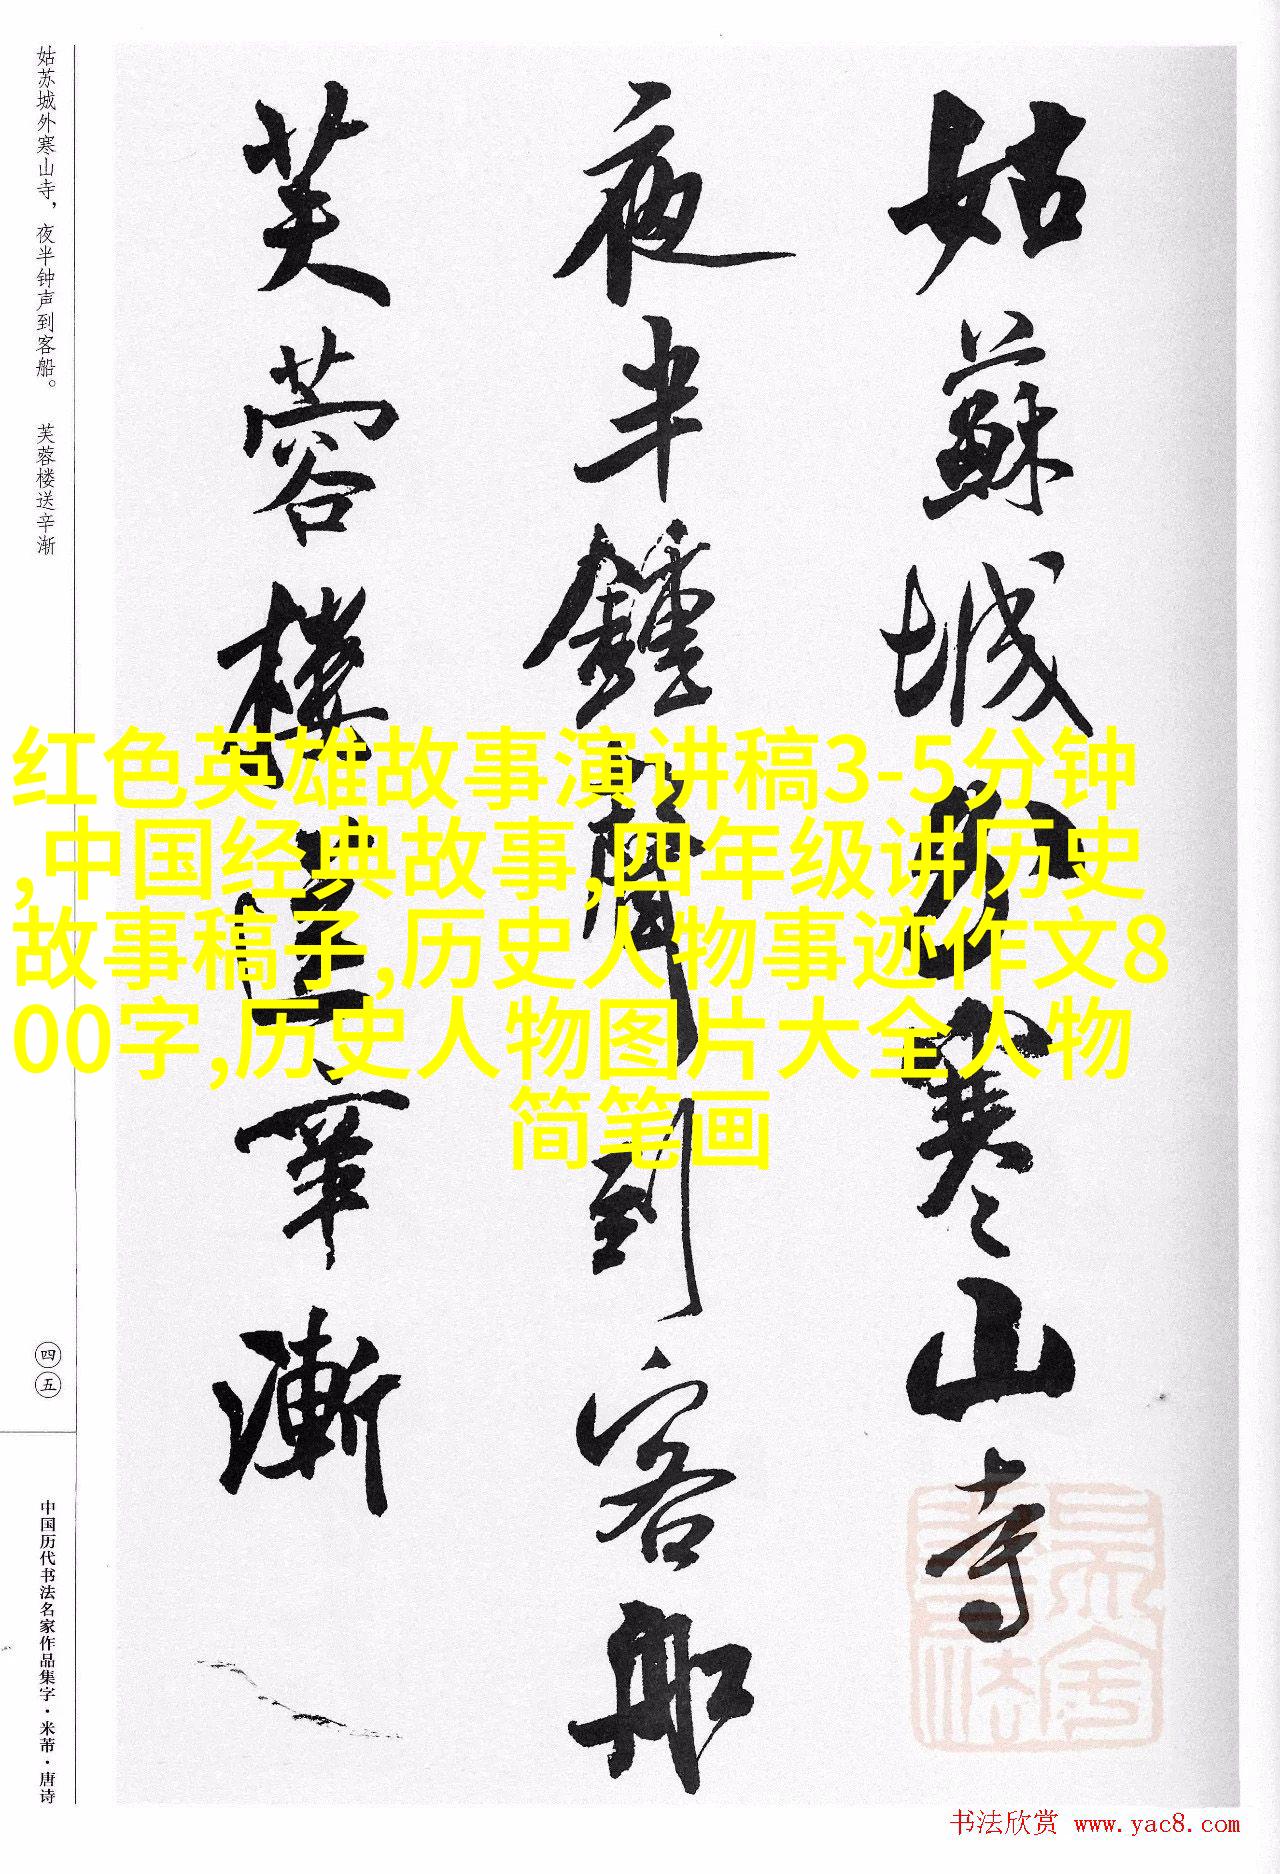 姑苏城外寒山寺，夜半钟声到客船。 芙蓉楼送辛渐
姑蘇城外寒山寺
夜半鐘聲到客船
芙蓉樓送辛漸
红色英雄故事演讲稿3-5分钟
,中国经典故事,四年级讲历史
故事稿子,历史人物事迹作文8
00字,历史人物图片大全人物
简笔画
四五
中国历代书法名家作品集字·米芾·唐诗
书法欣赏 www.yac8.com